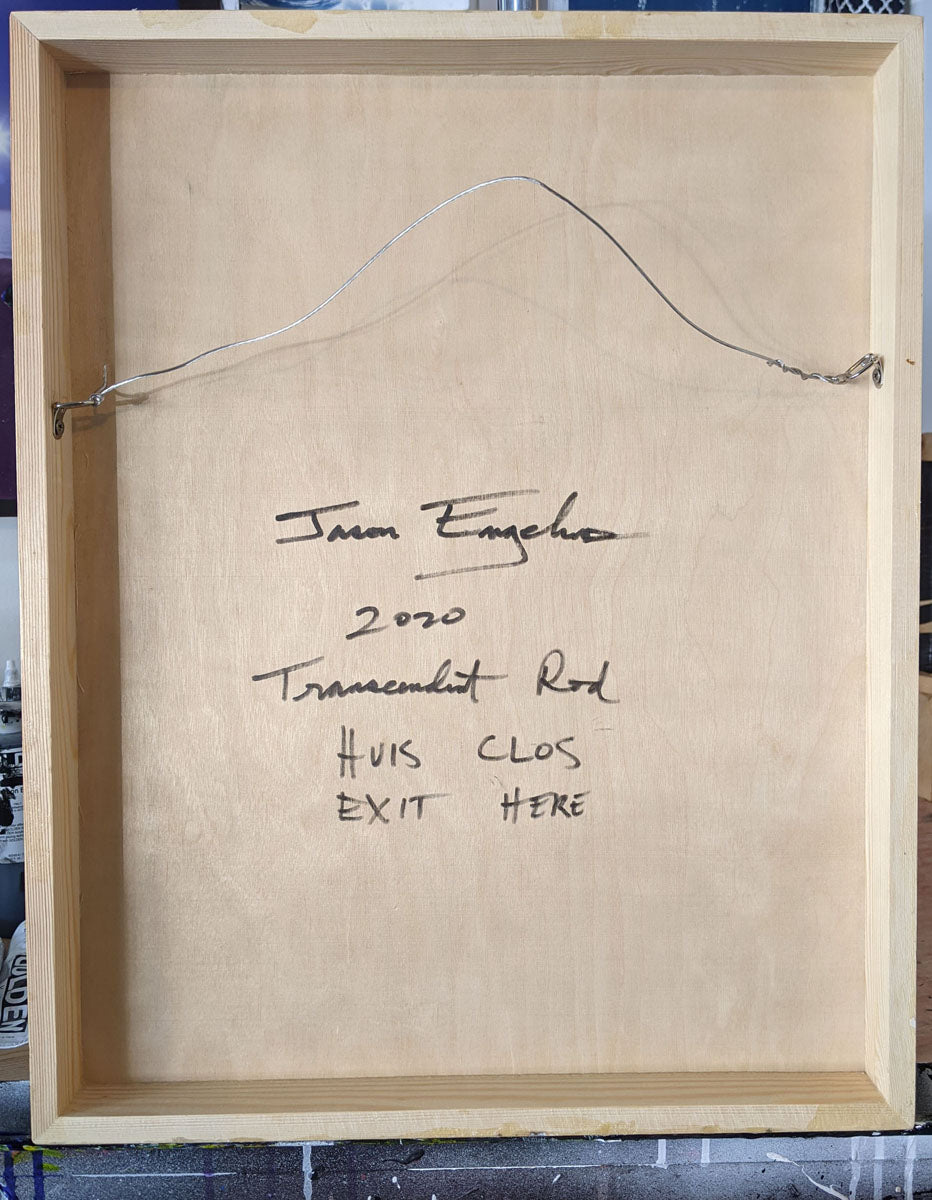 Jason Engelund
2020
Transcendent Rod
HUIS CLOS
EXIT HERE
GOLDEN